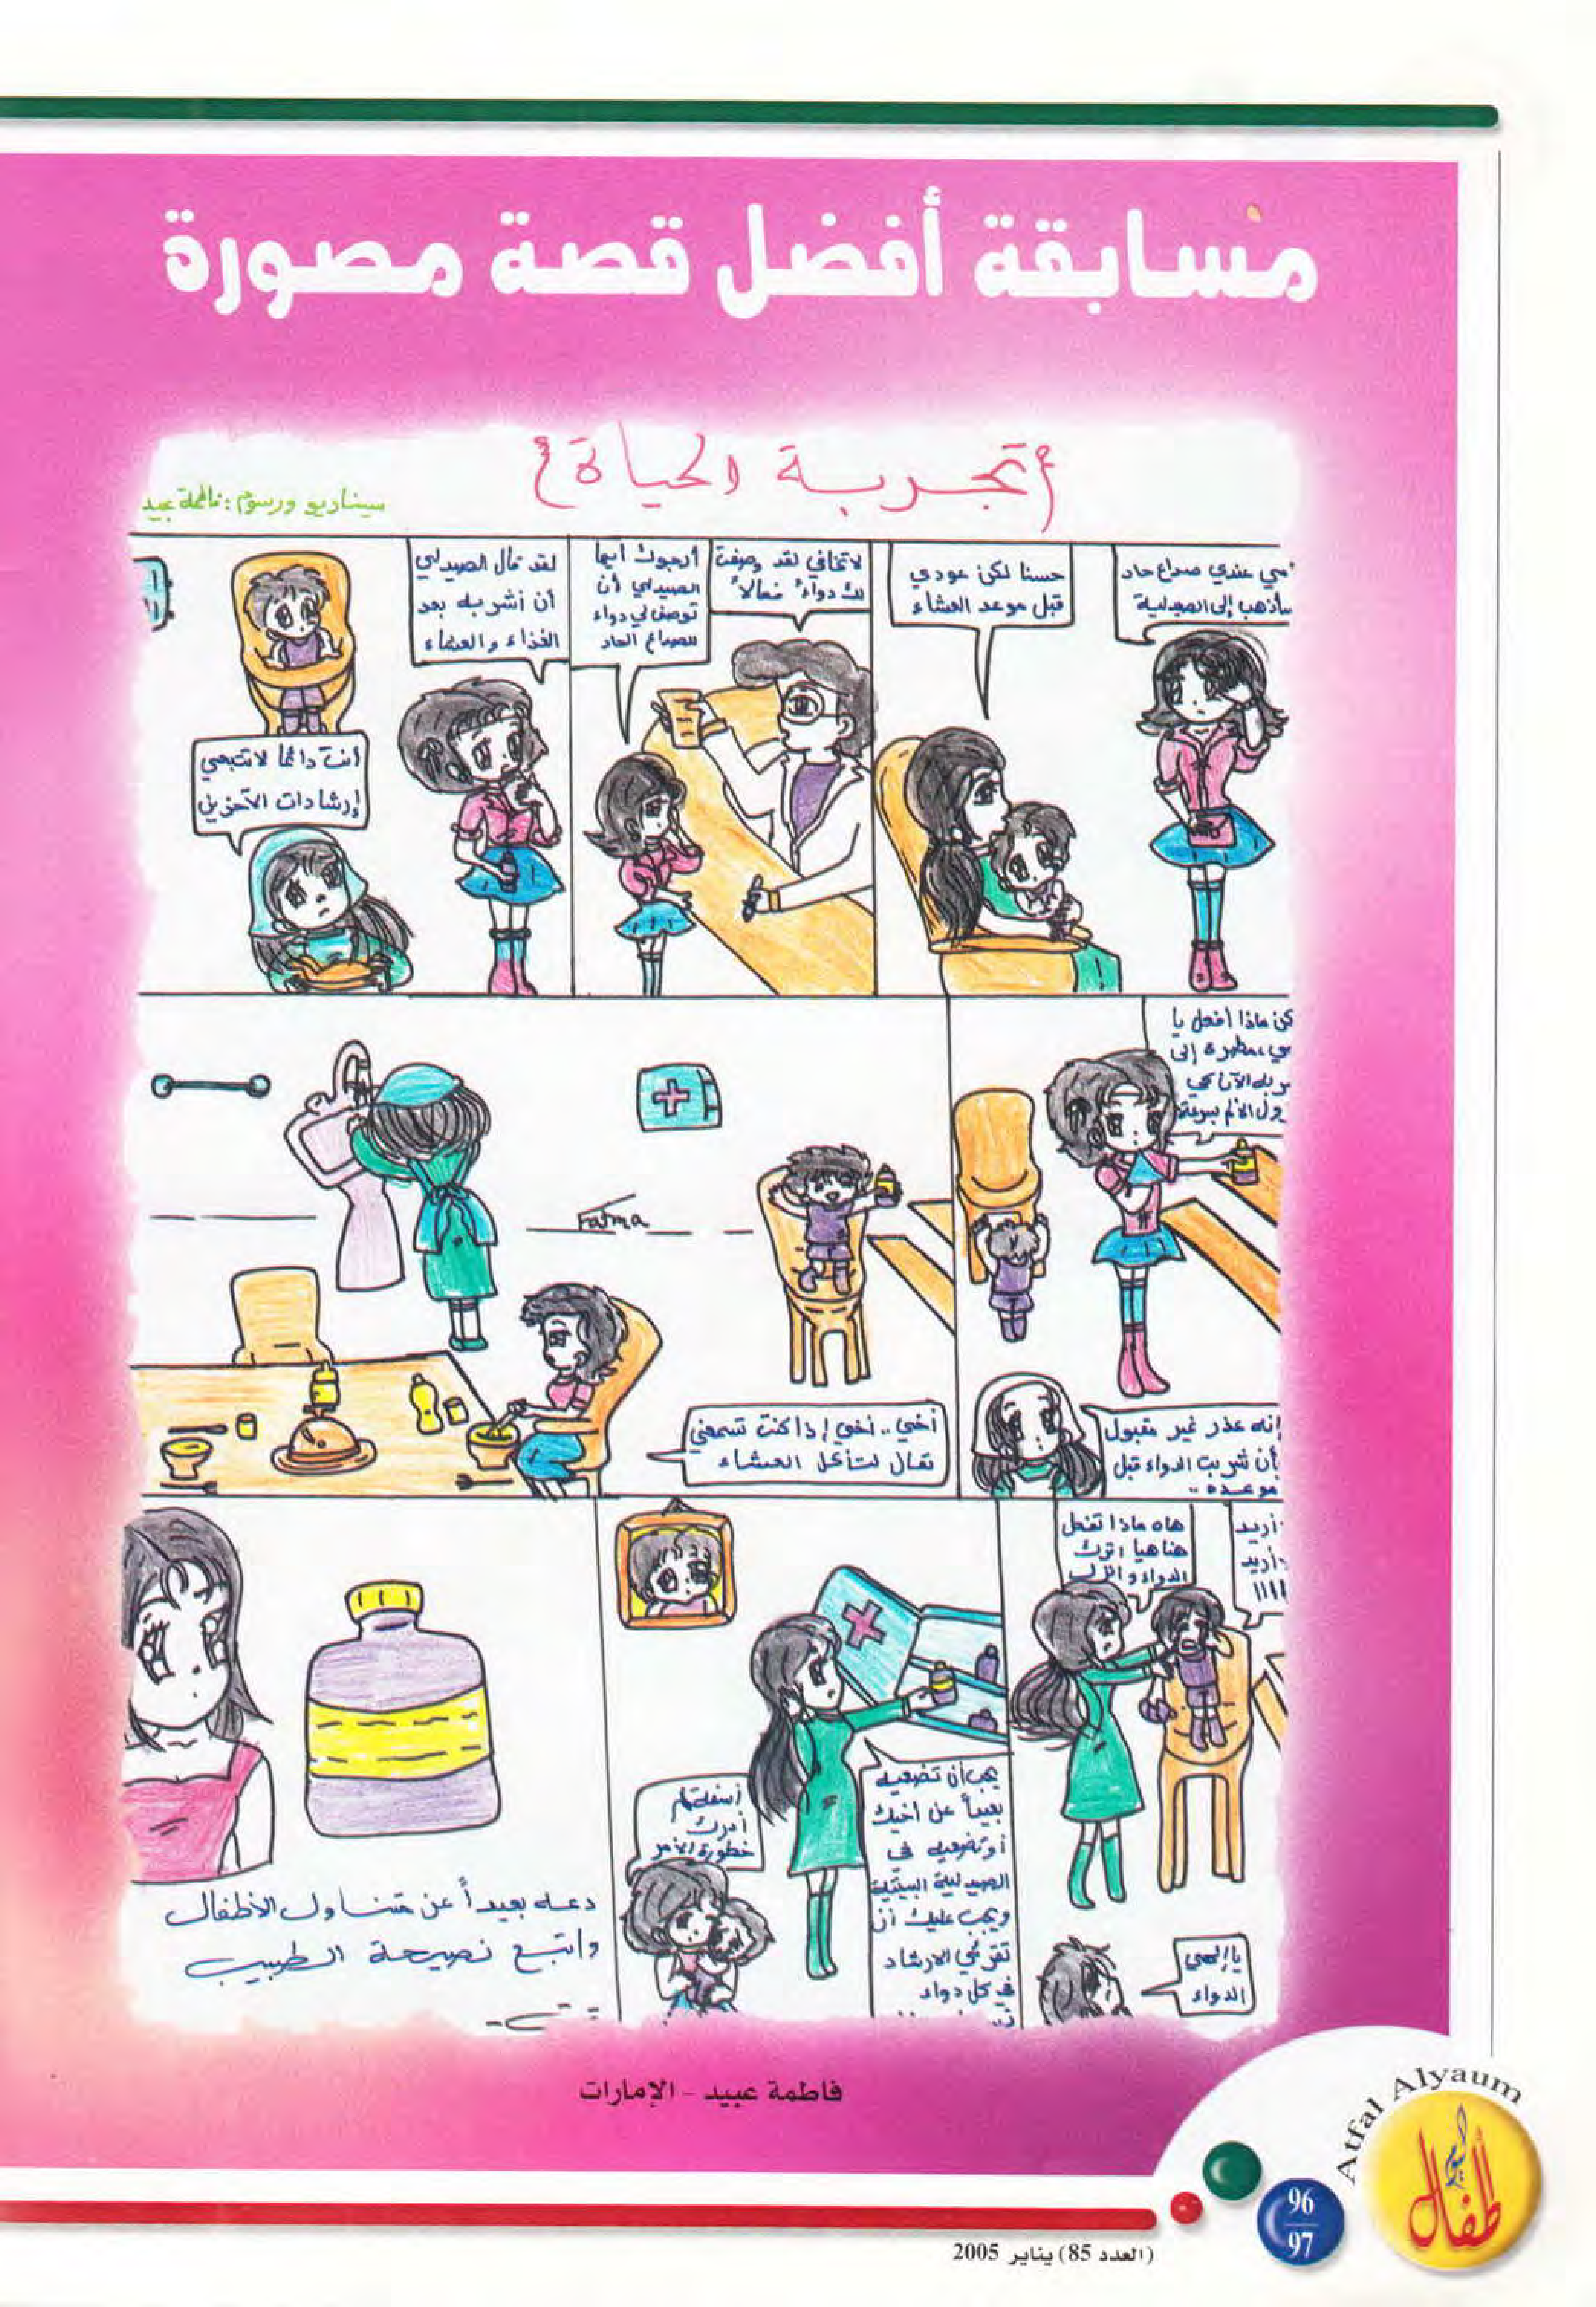 مسابقة أفضل قصة مصورة
{تجربة الحياة}
سيناريو ورسوم: فاطمة عبيد
مي عندي صداع حاد
سأذهب إلى الصيدلية
حسنا لكن عودي
قبل موعد العشاء
أرجوك أيها
الصيدلي أن
توصف لي دواء
للصداع الحاد
لا تخافي لقد وصفت
لك دواءً فعالاً
لقد قال الصيدلي
أن أشربه بعد
الغذاء والعشاء
أنت دائما لا تتبعي
إرشادات الآخرين
كن ماذا أفعل يا
مي، مظطرة إلى
ربه الآن كي
زول الألم بسرعة
إنه عذر غير مقبول
بأن شربت الدواء قبل
موعده ..
أخي .. أخي إذا كنت تسمعني
تعال لتأكل العشاء
Fatma
أريد
أريد
هاه ماذا تفعل
هنا هيا اترك
الدواء وانزل
يا إلهي
الدواء
يجب أن تضعيه
بعيداً عن أخيك
أو تضعيه في
الصيدلية البيتية
ويجب عليك أن
تقرئي الارشاد
في كل دواء
آسفة لم
أدرك
خطورة الأمر
دعه بعيداً عن متناول الأطفال
واتبع نصيحة الطبيب
تمت -
فاطمة عبيد - الإمارات
Atfal Alyaum
أطفال اليوم
96
97
(العدد 85) يناير 2005